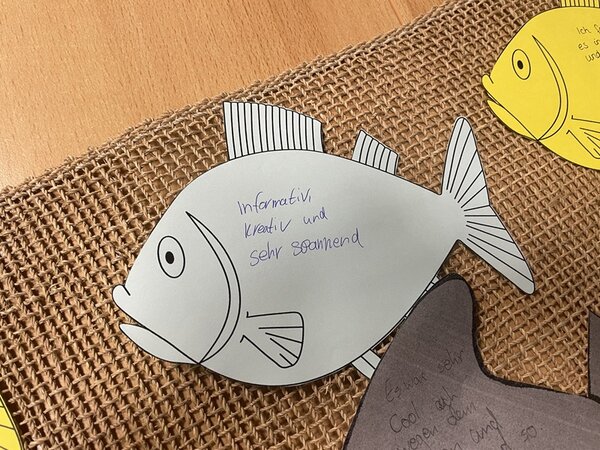 Informativ,
kreativ und
sehr spannend
Ich f
es in
und
Es war sehr
Cool
wegen dem
und
so.